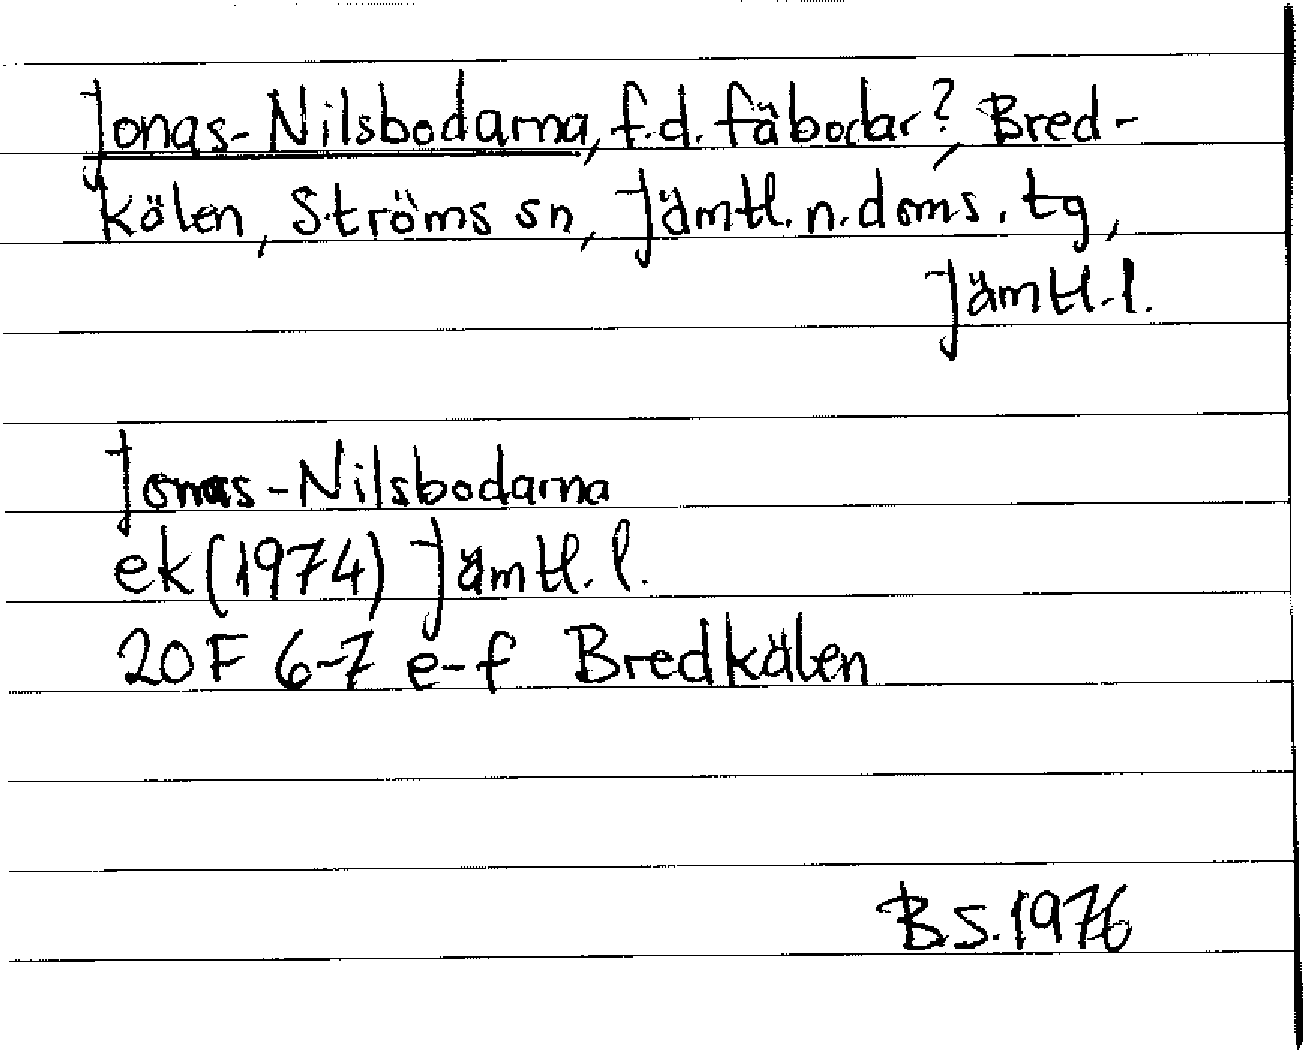 Jonas-Nilsbodarna, f.d. fäbodar?, Bred-
kälen, Ströms sn, Jämtl. n. doms. tg,
Jämtl. l.
Jonas-Nilsbodarna
ek (1974) Jämtl. l.
20F 6-7 e-f Bredkälen
B.S. 1976